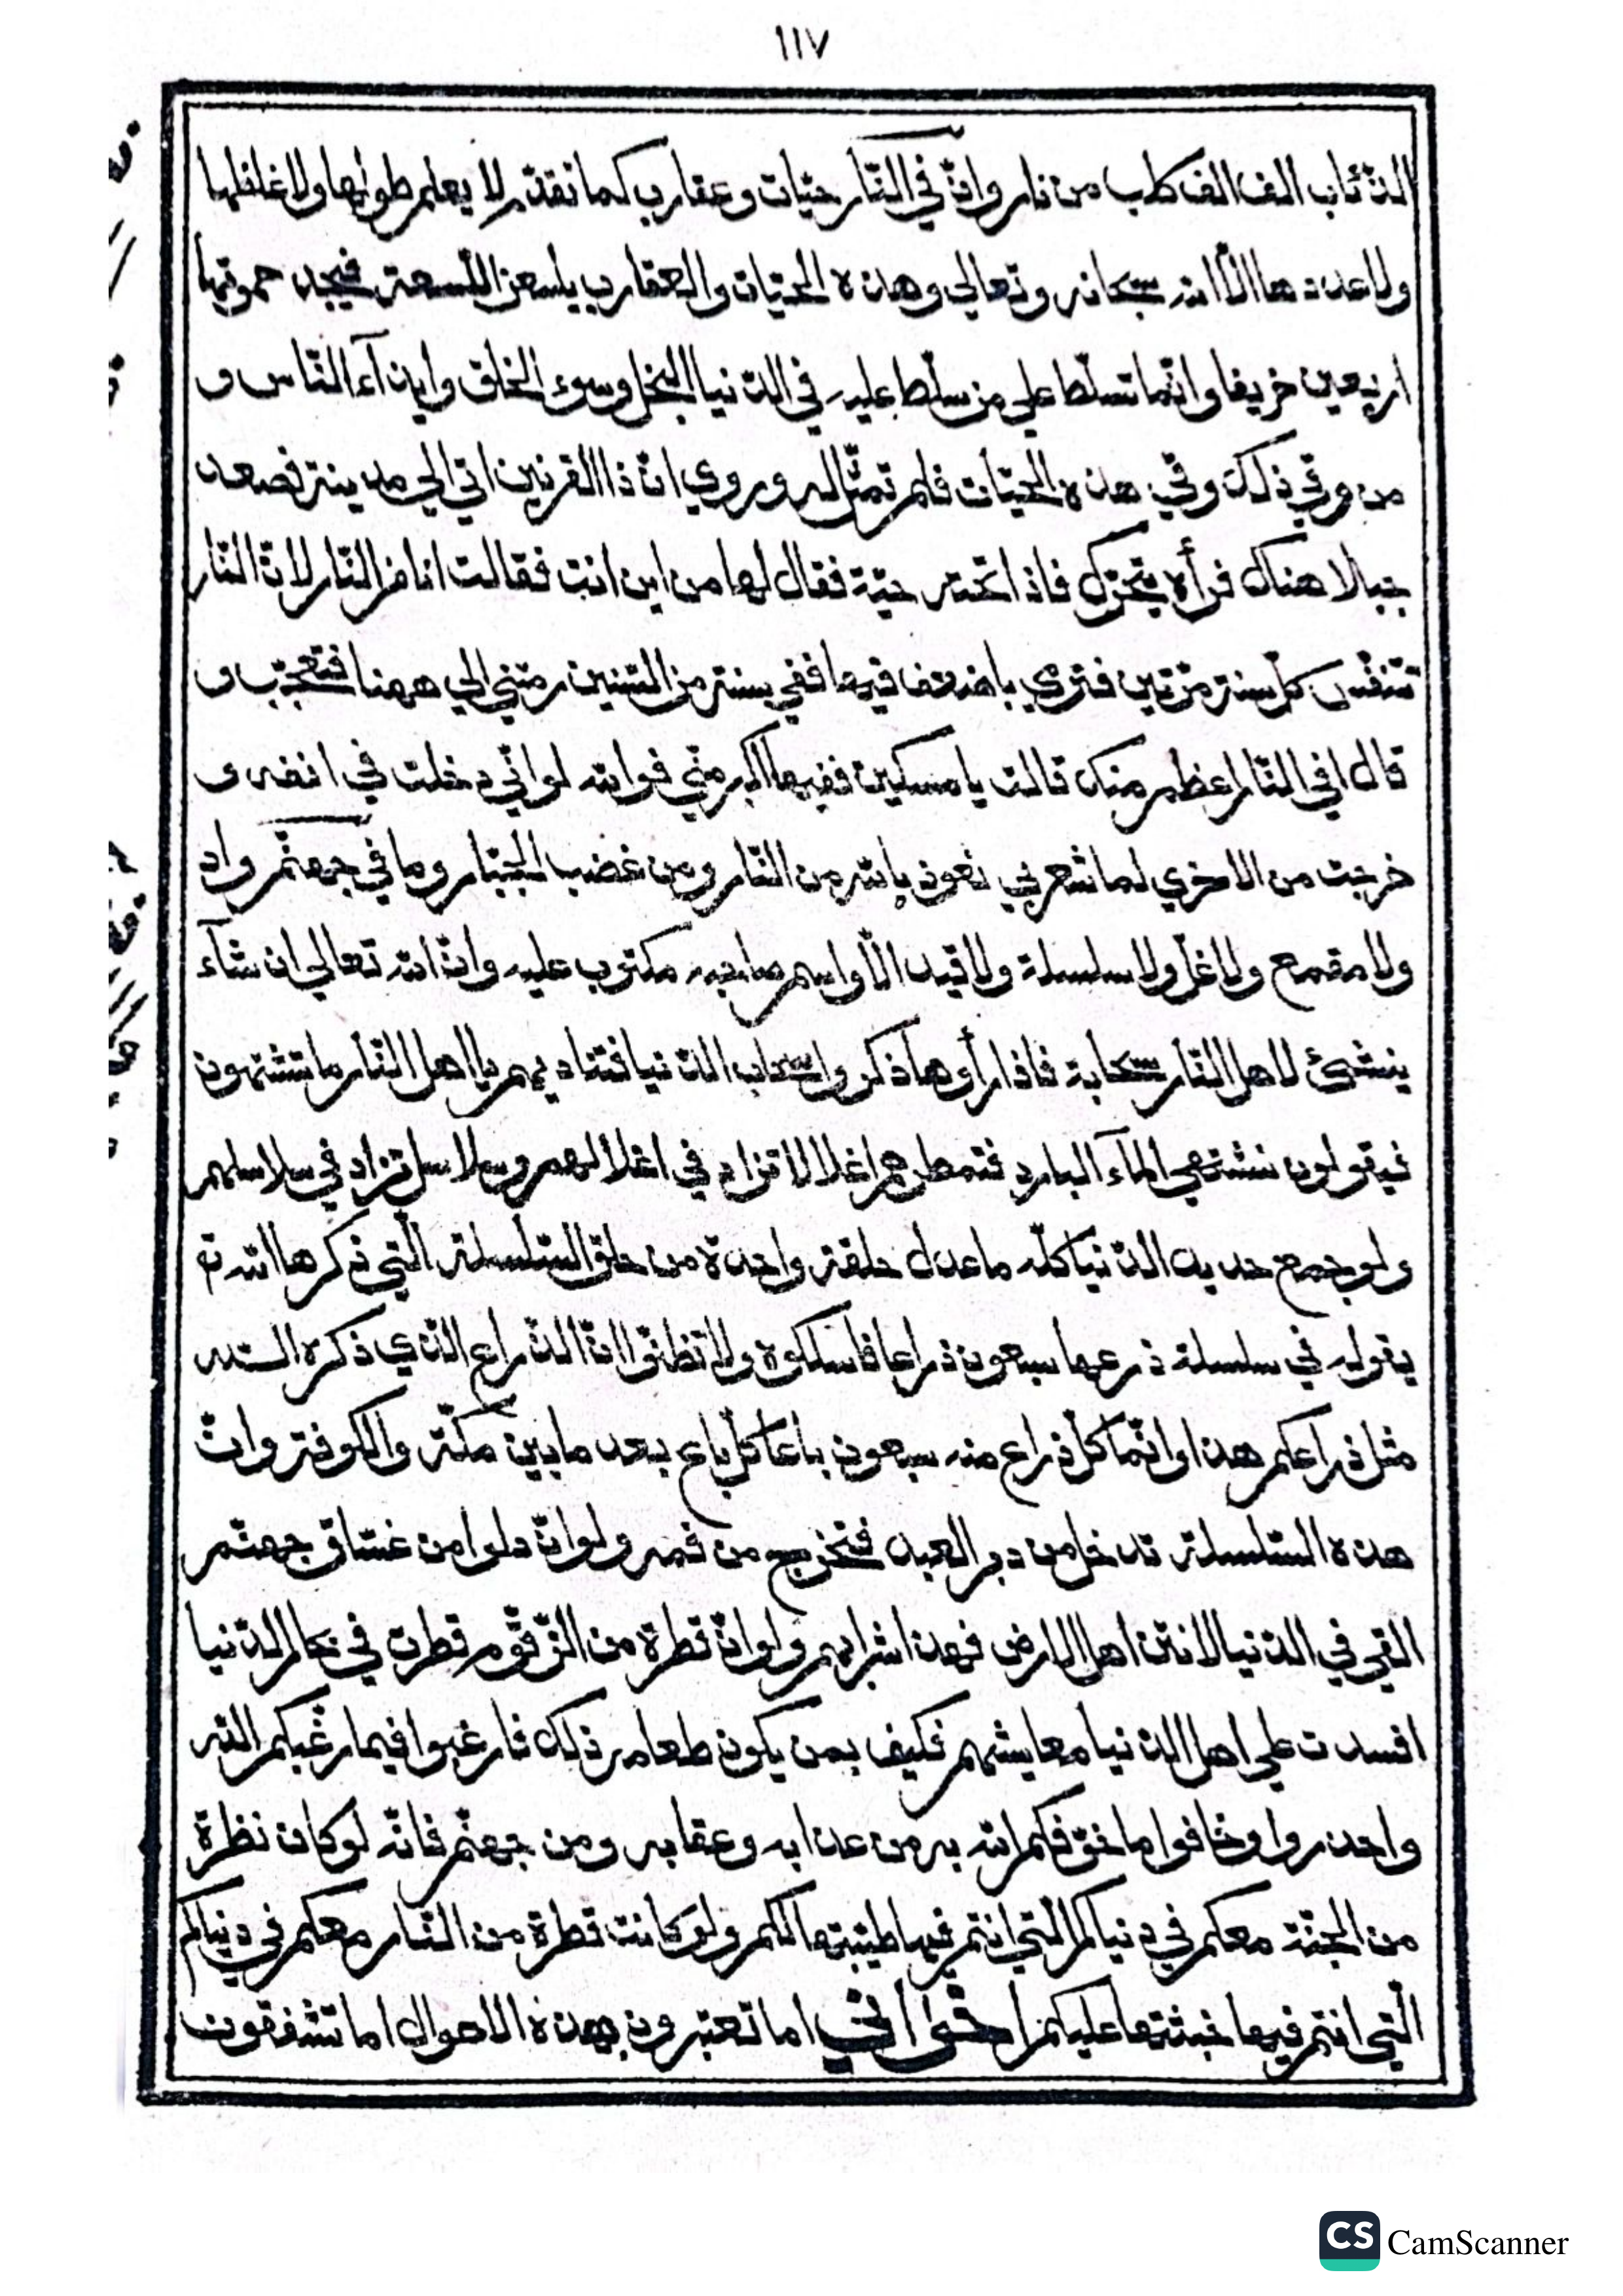 ١١٧
الذئاب الف الف كلب من نار وانّ في النّار حيّات وعقارب كما تقدّم لا يعلم طولها ولا غلظها
ولا عددها الّا الله سبحانه وتعالي وهذه الحيّات والعقارب يلسعن اللّسعة فيجد حموتها
اربعين خريفا وانّما تسلّط علي من سلّط عليه في الدّنيا البخل وسوء الخلق وايذآء النّاس و
من وقي ذلك وقي هذه الحيّات فلم تمثّل له وروي انّ ذا القرنين اتي الي مدينة فصعد
جبالا هناك فرأه يتحرّك فاذا تحته حيّة فقال لها من اين انت فقالت انا من النّار لانّ النّار
تتنفّس كلّ سنة مرّتين فترمي باضعف فيها ففي سنة من السّنين رمتني الي ههنا فتعجّب و
قال افي النّار اعظم منك قالت يا مسكين ففيها اكبر منّي فوالله لو انّي دخلت في انفه و
خرجت من الاخري لما شعر بي نعوذ بالله من النّار ومن غضب الجبّار وما في جهنّم واد
ولا مقمع ولا غلّ ولا سلسلة ولا قيد الّا واسم صاحبه مكتوب عليه وانّ الله تعالي ان شآء
ينشئ لاهل النّار سحابة فاذا رأوها ذكروا سحاب الدّنيا فتناديهم يا اهل النّار ما تشتهون
فيقولون نشتهي المآء البارد فتمطرهم اغلالا تزاد في اغلالهم وسلاسل تزاد في سلاسلهم
ولو جمع حديد الدّنيا كلّه ما عدل حلقة واحدة من حلق السّلسلة الّتي ذكرها الله تع
بقوله في سلسلة ذرعها سبعون ذراعا فاسلكوه ولا تظنّوا انّ الذّراع الّذي ذكره الله
مثل ذراعكم هذا وانّما كلّ ذراع منه سبعون باعا كلّ باع بعد ما بين مكّة والكوفة وانّ
هذه السّلسلة تدخل من دبر العبد فتخرج من فمه ولو انّ دلوا من غسّاق جهنّم
القي في الدّنيا لانتن اهل الارض فهذا شرابهم ولو انّ قطرة من الزّقّوم قطرت في بحار الدّنيا
افسدت علي اهل الدّنيا معايشهم فكيف بمن يكون طعامه ذلك فارغبوا فيما رغّبكم الله
واحذروا وخافوا ما خوّفكم الله به من عذابه وعقابه ومن جهنّم فانّه لو كان نظرة
من الجنّة معكم في دنياكم الّتي انتم فيها طيّبتها لكم ولو كانت قطرة من النّار معكم في دنياكم
الّتي انتم فيها خبثتها عليكم اما تعتبرون بهذه الاحوال اما تشفقون
CS CamScanner